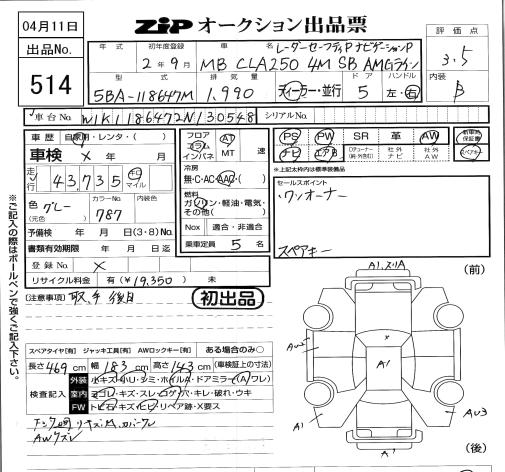 04月11日
出品No.
514
ZiP オークション出品票
評価点
3.5
内装
B
年式 初年度登録 車名 レーダーセーフティP ナビゲーションP
2年9月 MB CLA250 4M SB AMGライン
型式 排気量 ドア ハンドル
5BA-118647M 1,990 ディーラー・並行 5 左・右
車台No. W1K1186472N130548 シリアルNo.
車歴 自家用・レンタ・( )
車検 × 年 月
走行 43,735 km マイル
色(元色) グレー カラーNo. 787 内装色
予備検 年 月 日(3・8)No.
書類有効期限 年 月 日迄
登録No. ×
リサイクル料金 有(¥19,350) 未
フロア コラム インパネ AT MT 速
冷房 無・C・AC・AAC・( )
燃料 ガソリン・軽油・電気・その他( )
Nox 適合・非適合
乗車定員 5 名
PS PW SR 革 AW 新車時保証書
テレビ エアB Dナビ 社外ナビ 社外AW スペアキー
※上記太枠内は標準装備品
セールスポイント
・ワンオーナー
スペアキー
[注意事項] 取、手 後日
初出品
※ご記入の際はボールペンで強くご記入下さい。
スペアタイヤ[有] ジャッキ工具[有] AWロックキー[有] ある場合のみ○
長さ469cm 幅183cm 高さ143cm (車検証上の寸法)
検査記入
外装 小キズ・小U・シミ・ホイルA・ドアミラー(A ワレ)
室内 ヨゴレ・キズ・スレ・コゲ穴・キレ・破れ・ウキ
FW トビ石・キズ・ヒビ・リペア跡・X要ス
AWクスレ
A1,スリA
(前)
A1
A1
AW3
A1
(後)